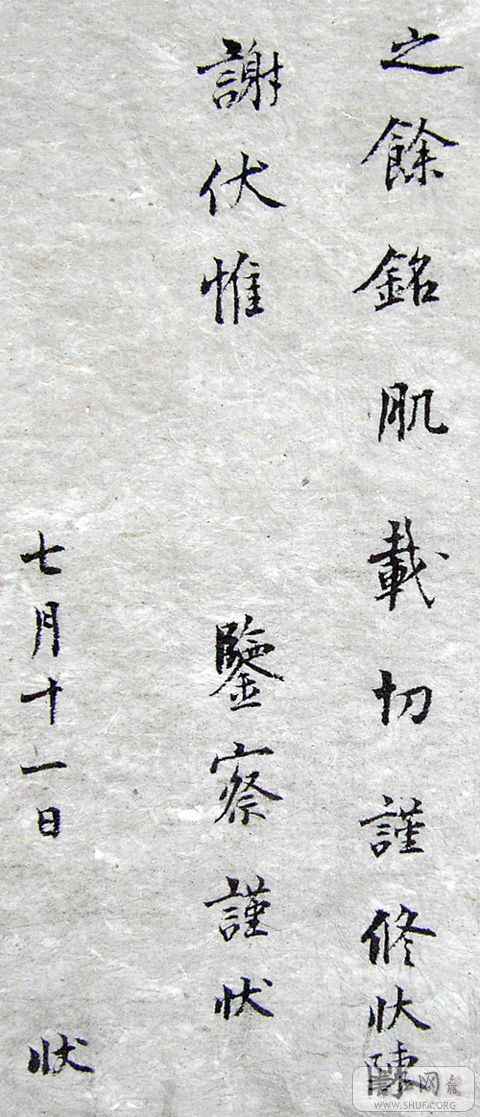 之餘銘肌載切謹修狀陳
謝伏惟
鑒察謹狀
七月十一日
狀
書法网
WWW.SHUFA.ORG